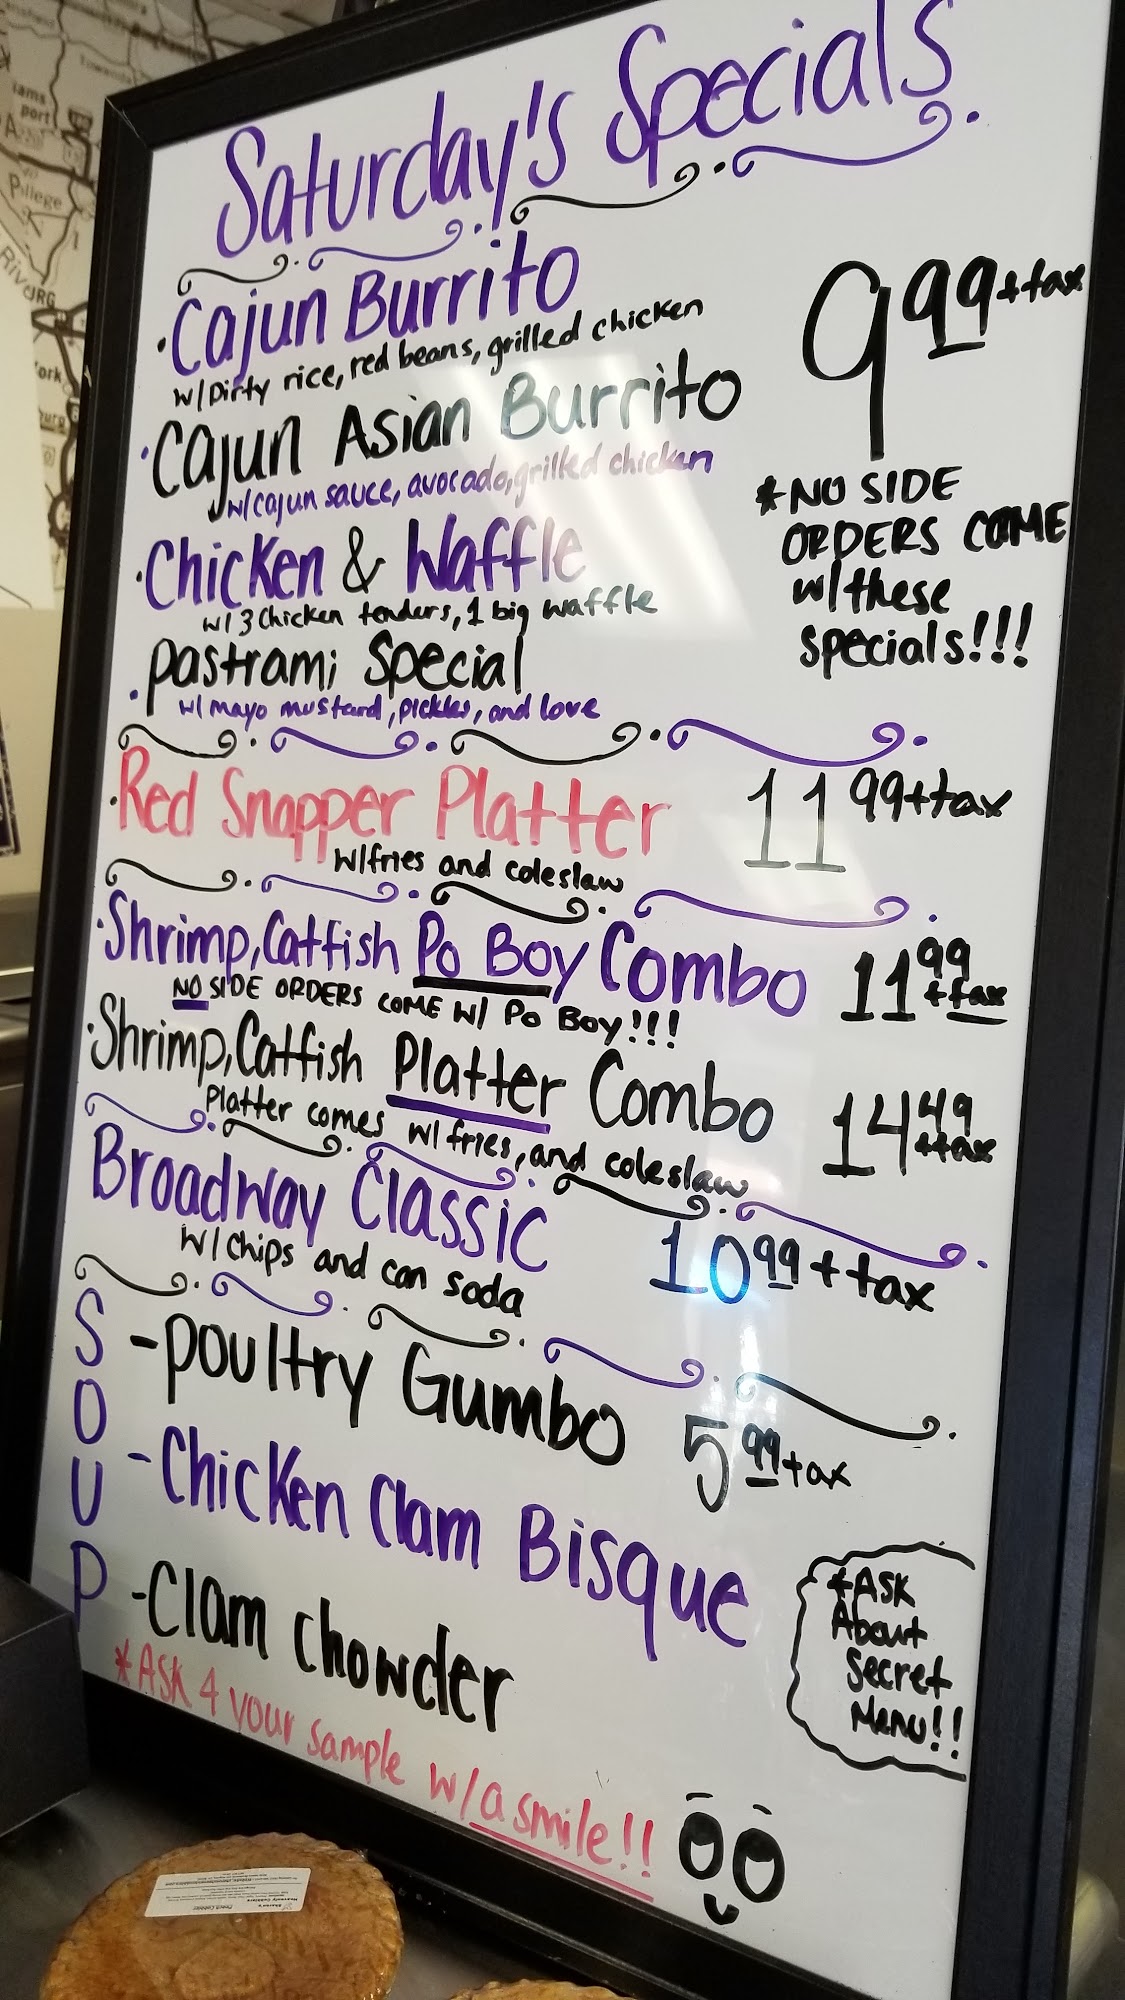 Saturday's Specials
· Cajun Burrito
w/ Dirty rice, red beans, grilled chicken
9 99 + tax
· Cajun Asian Burrito
w/ cajun sauce, avocado, grilled chicken
* NO SIDE
ORDERS COME
w/ these
specials!!!
· Chicken & Waffle
w/ 3 Chicken tenders, 1 big waffle
· Pastrami Special
w/ mayo mustard, pickles, and love
· Red Snapper Platter 11 99 + tax
w/ fries and coleslaw
· Shrimp, Catfish Po Boy Combo 11 99 + tax
NO SIDE ORDERS COME W/ Po Boy!!!
· Shrimp, Catfish Platter Combo 14 49 + tax
Platter comes w/ fries, and coleslaw
Broadway Classic 10 99 + tax
w/ chips and can soda
SOUP
- Poultry Gumbo 5 99 + tax
- Chicken Clam Bisque
- Clam chowder
* ASK
About
Secret
Menu!!
* ASK 4 your sample w/ a smile!!
Pillege
Peach Cobbler